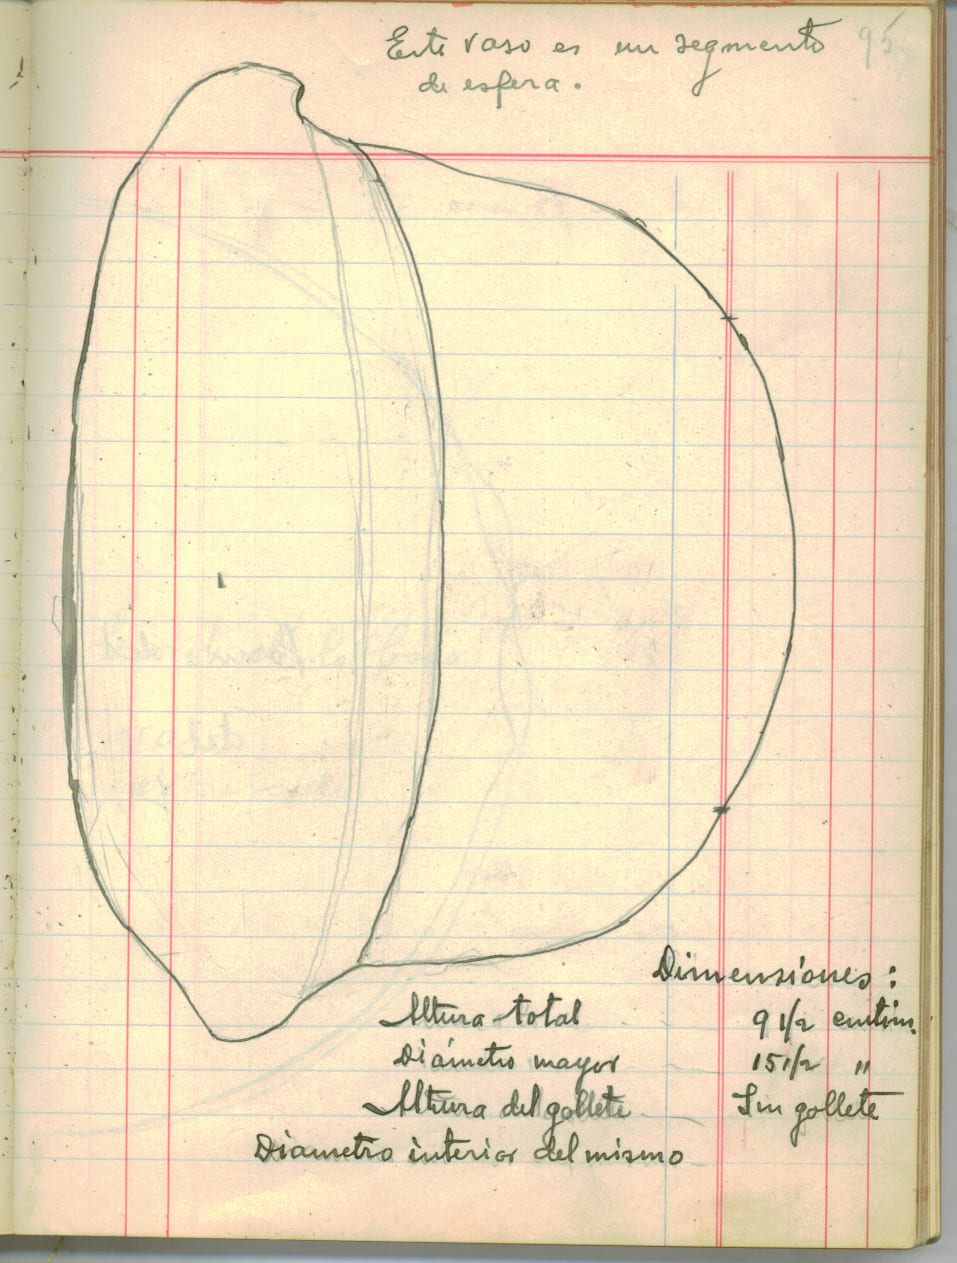 95
Este vaso es un segmento
de esfera.
Dimensiones:
Altura total 9 1/2 centim.
Diámetro mayor 15 1/2 "
Altura del gollete Sin gollete
Diametro interior del mismo